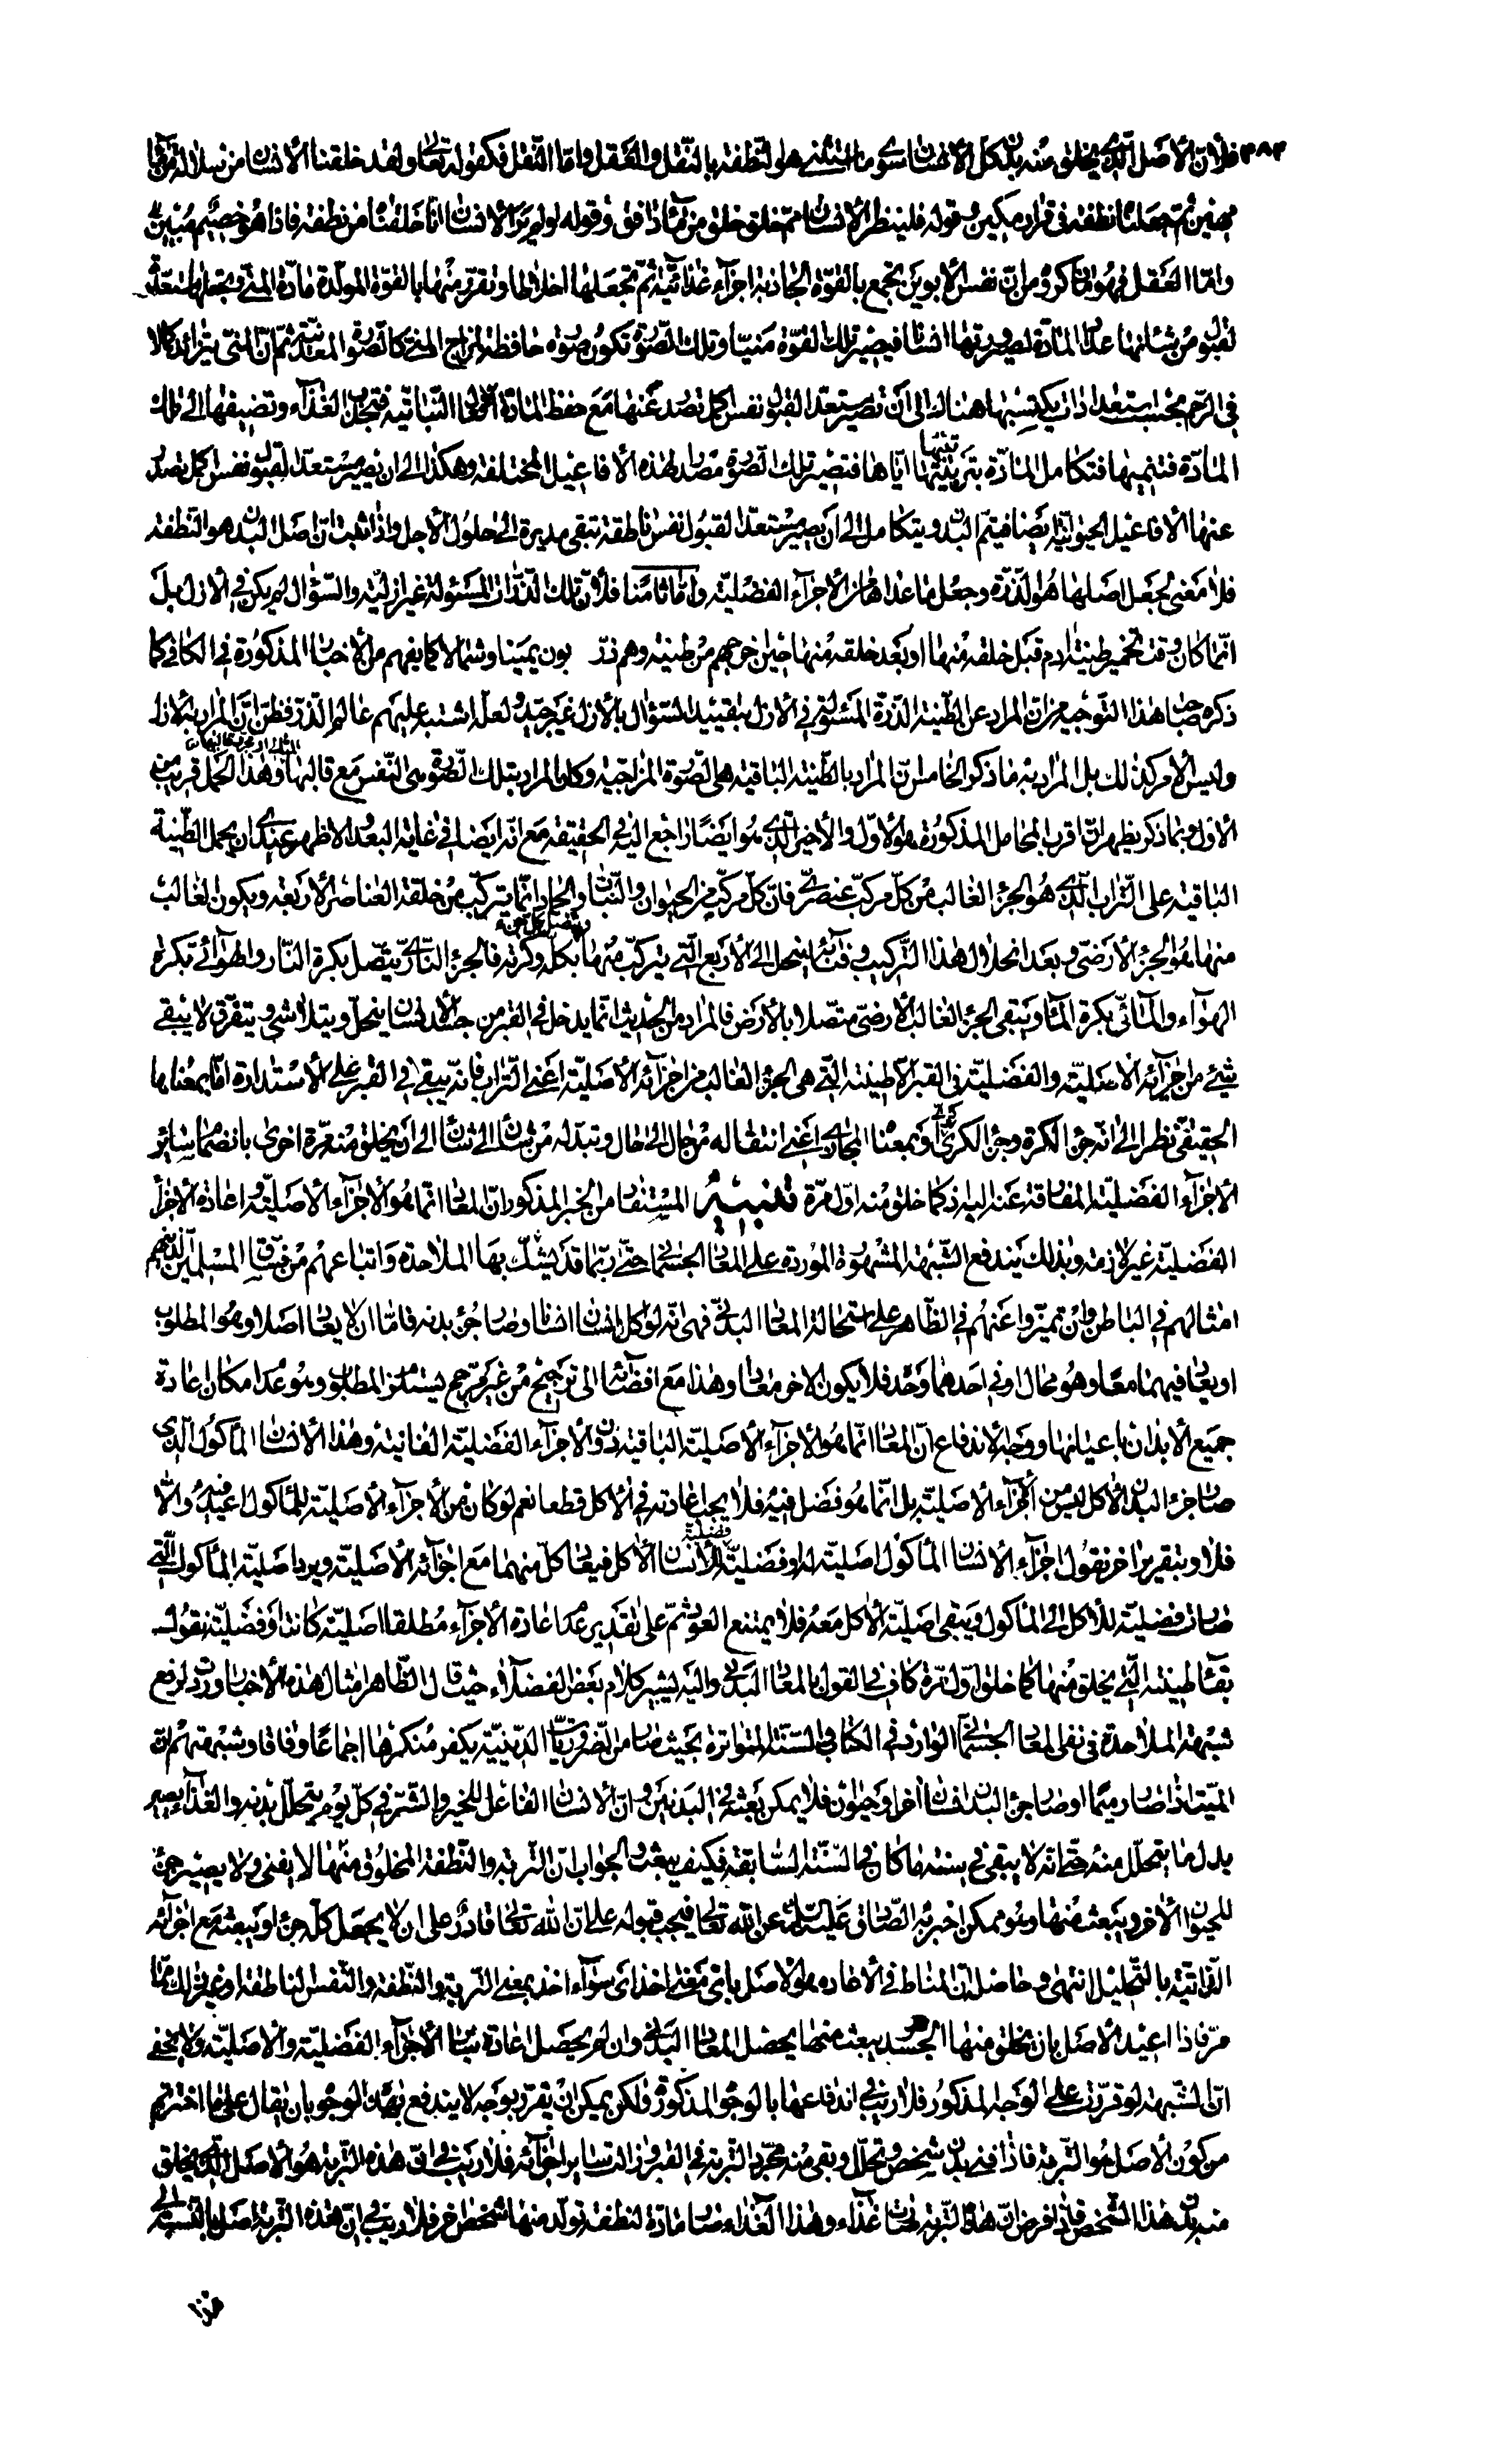 ٢٨٣ فلأنّ الأصل الّذي يخلق منه بدن كلّ الإنسان سوى ما استثني هو النّطفة بالنّقل والعقل وامّا النّقل فكقوله تعالى ولقد خلقنا الانسان من سلالة من ماء
مهين ثمّ جعلناه نطفة في قرار مكين وقوله فلينظر الإنسان ممّ خلق خلق من ماء دافق وقوله اولم ير الإنسان انّا خلقناه من نطفة فاذا هو خصيم مبين
وامّا العقل فهو ما ذكروه من انّ نفس الأبوين تجمع بالقوّة الجاذبة اجزآء غذائيّة ثمّ تجعلها اخلاطا وتفرز منها بالقوّة المولّدة مادّة المني وتجعلها مستعدّة
لقبول من شانها اعداد المادّة لصيرورتها انسانا فيصير بتلك القوّة منيّا وتلك الصّورة تكون صورة حافظة لمزاج المني كالصّورة المعدنيّة ثمّ انّ المني يتزايد كمالا
في الرّحم بحسب استعدادات يكتسبها هناك الى ان تصير مستعدّا لقبول نفس اكمل تصدر عنها مع حفظ المادة الأفعال النّباتيّة فتجذب الغذآء وتضيفها الى تلك
المادّة فتنميها فتكامل المادّة بتربيتها ايّاها فتصير تلك الصّورة مصدرا لهذه الأفاعيل المختلفة وهكذا الى ان يصير مستعدّا لقبول نفس اكمل يصدر
عنها الأفاعيل الحيوانيّة ايضا فيتمّ البدن ويتكامل الى ان يصير مستعدّا لقبول نفس ناطقة تبقى مدبرة الى حلول الأجل واذا ثبت انّ اصل البدن هو النّطفة
فلا معنى لجعل اصلها هو الذرّة وجعل ما عداها من الأجزآء الفضليّة وامّا ثامنا فلأنّ تلك الذّرّات المسئولة غير ازليّة والسّؤال لم يكن في الأزل بل
انّما كان وقت تخمير طينة ادم قبل خلقه منها او بعد خلقه منها حين خروجهم من طينته وهم ذرّ يدبون يمينا وشمالا كما يفهم من الأخبار المذكورة في الكافي كما
ذكره صاحب هذا التّوجيه من انّ المراد عن الطّينة الذّرّة المسئولة في الأزل بتقييد السّؤال بالأزل غير جيّد ولعلّه اشتبه عليهم عالم الذّر فظنّ انّ المراد به الأزل
وليس الأمر كذلك بل المراد به ما ذكر الخامس انّ المراد بالطّينة الباقية هي الصّورة المزاجيّة وكان المراد بتلك الصّورة هي النّفس مع قالبها وهذا الحمل قريب من
الأوّل وبما ذكر يظهر انّ اقرب المحامل المذكورة هو الأوّل والأخير الّذي هو ايضًا راجع اليه في الحقيقة مع انّه ايضا في غاية البعد الاظهر عندي ان يحمل الطّينة
الباقية على التّراب الّذي هو الجزء الغالب من كلّ مركّب عنصريّ فانّ كلّ مركّب من الحيوان والنّبات والجماد انّما يتركّب من خلقة العناصر الأربعة ويكون الغالب
منها هو الجزء الأرضيّ وبعد انحلال هذا التّركيب وفنائه ينحل الى الأربع الّتي يتركّب منها ويتّصل كلّ جزء بكلّه وكرته فالجزء النّاري يتّصل بكرة النّار والهوآئي بكرة
الهوآء والمآئي بكرة المآء ويبقى الجزء الغالب الأرضي متّصلا بالأرض فالمراد من الحديث انّما يدخل في القبر من جسد الانسان ينحلّ ويتلاشى ويتفرّق ولا يبقى
شيئ من اجزآئه الأصليّة والفضليّة في القبر الا طينته الّتي هي الجزء الغالب من اجزآئه الأصليّة اعني التّراب فانّه يبقى في القبر على الاستدارة امّا بمعناها
الحقيقي نظرا الى انّه جزء الكرة وجزء الكرة كريّ او بمعناه المجازي اعني انتقاله من حال الى حال وتبدّله من شان الى شان الى ان يخلق منه مرّة اخرى بانضمام ساير
الأجزآء الفضليّة المفارقة عنه اليه اذ كما خلق منه اوّل مرّة تنبيه المستفاد من الخبر المذكور انّ المعاد انّما هو الأجزآء الأصليّة واعادة الاجزآء
الفضليّة غير لازمة وبذلك يندفع الشّبهة المشهورة الموردة على المعاد الجسماني حتّى ربّما قد يتشبّث بها الملاحدة واتباعهم من فسّاق المسلمين الّذينهم
امثالهم في الباطن وان تميّزوا عنهم في الظّاهر على استحالة المعاد البدني فهي انّه لو اكل انسان انسانا وصار جزء بدنه فامّا ان لا يعاد اصلا وهو المطلوب
او يعاد فيهما معا وهو محال او في احدهما وحده فلا يكون الاخر معادا وهذا مع افضائه الى ترجيح من غير مرجّح يستلزم المطلوب وهو عدم امكان اعادة
جميع الأبدان باعيانها ووجه الاندفاع انّ المعاد انّما هو الأجزآء الأصليّة الباقية دون الأجزآء الفضليّة الفانية وهذا الأنسان المأكول الّذي
صار جزء البدن الأكل ليس من الأجزآء الأصليّة بل انّما هو فضل فيه فلا يجب اعادته في الأكل قطعا نعم لو كان من الأجزآء الأصليّة للمأكول اعيد فيه والّا
فلا وبتقرير اخر نقول اجزآء الانسان المأكول اصليّة له او فضليّة فضليّة للأنسان الأكل فيعاد كلّ منهما مع اجزآئه الأصليّة ويرد اصليّة المأكول الّتي
صارت فضليّة للأكل الى المأكول ويبقى اصليّة الأكل معه فلا يمتنع العود ثمّ على تقدير عدم اعادة الأجزآء مطلقا اصليّة كانت او فضليّة نقول
بقآء طينته الّتي يخلق منها كما خلق اوّل مرّة كاف في القول بالمعاد البدني واليه يشير كلام بعض الفضلآء حيث قال الظّاهر امثال هذه الأخبار وردت لدفع
شبهة الملاحدة في نفي المعاد الجسماني الوارد في الكتاب والسّنّة المتواترة بحيث صار من الضّروريّات الدّينيّة يكفر منكرها اجماعا وفاقا وشبهتهم انّ
الميّت اذا صار رميما او صار جزء البدن انسان اخر او حيوان فلا يمكن بعثه في البدنين وانّ الأنسان الفاعل للخير والشّر في كلّ يوم يتحلّل بدنه والغذآء يصير
بدل ما يتحلّل منه حتّى انّه لا يبقى في سنة ما كان في السّنة السّابقة فكيف يبعث والجواب انّ التّربة والنّطفة المخلوق منها لا يفنى ولا يصير جزء
للحيوان الأخر ويبعث منها وهو ممكن اخبر به الصّادق عليه السّلام عن الله تعالى فيجب قبوله على انّ الله تعالى قادر على ان لا يجعل كلّه جزء او يبعثه مع اجزآئه
الذّاتيّة بالتّحليل انتهى وحاصله انّ المناط في الأعاده هو الأصل باي معنى اخذ اي سوآء اخذ بمعنى التّربة والنّطفة والنّفس الناطقة او غير ذلك ممّا
مرّ فاذا اعيد الأصل بان يخلق منها الجسد ويبعث منها يحصل المعاد البدني وان لم يحصل اعادة ساير الأجزآء الفضليّة والأصليّة ولا يخفى
انّ الشّبهة لو قرّرت على الوجه المذكور فلا ريب في اندفاعها بالوجوه المذكورة ولكن يمكن ان يقرّر بوجه لا يندفع بهذه الوجوه بان يقال على ما اخترتم
من كون الأصل هو التّربة فاذا فنى بدن شخص وتحلّل وبقي منه مجرّد التّربة في القبر وزالت ساير اجزآئه فلا ريب في انّ هذه التّربة هو الأصل الّذي يخلق
منه بدن هذا الشّخص فاذا فرض انّ هذه التّربة صارت غذآء وهذا الغذآء صار مادّة لنطفة تولّد منها شخص اخر فلا ريب في انّ هذه التّربة اصل بالنّسبة الى
هذا